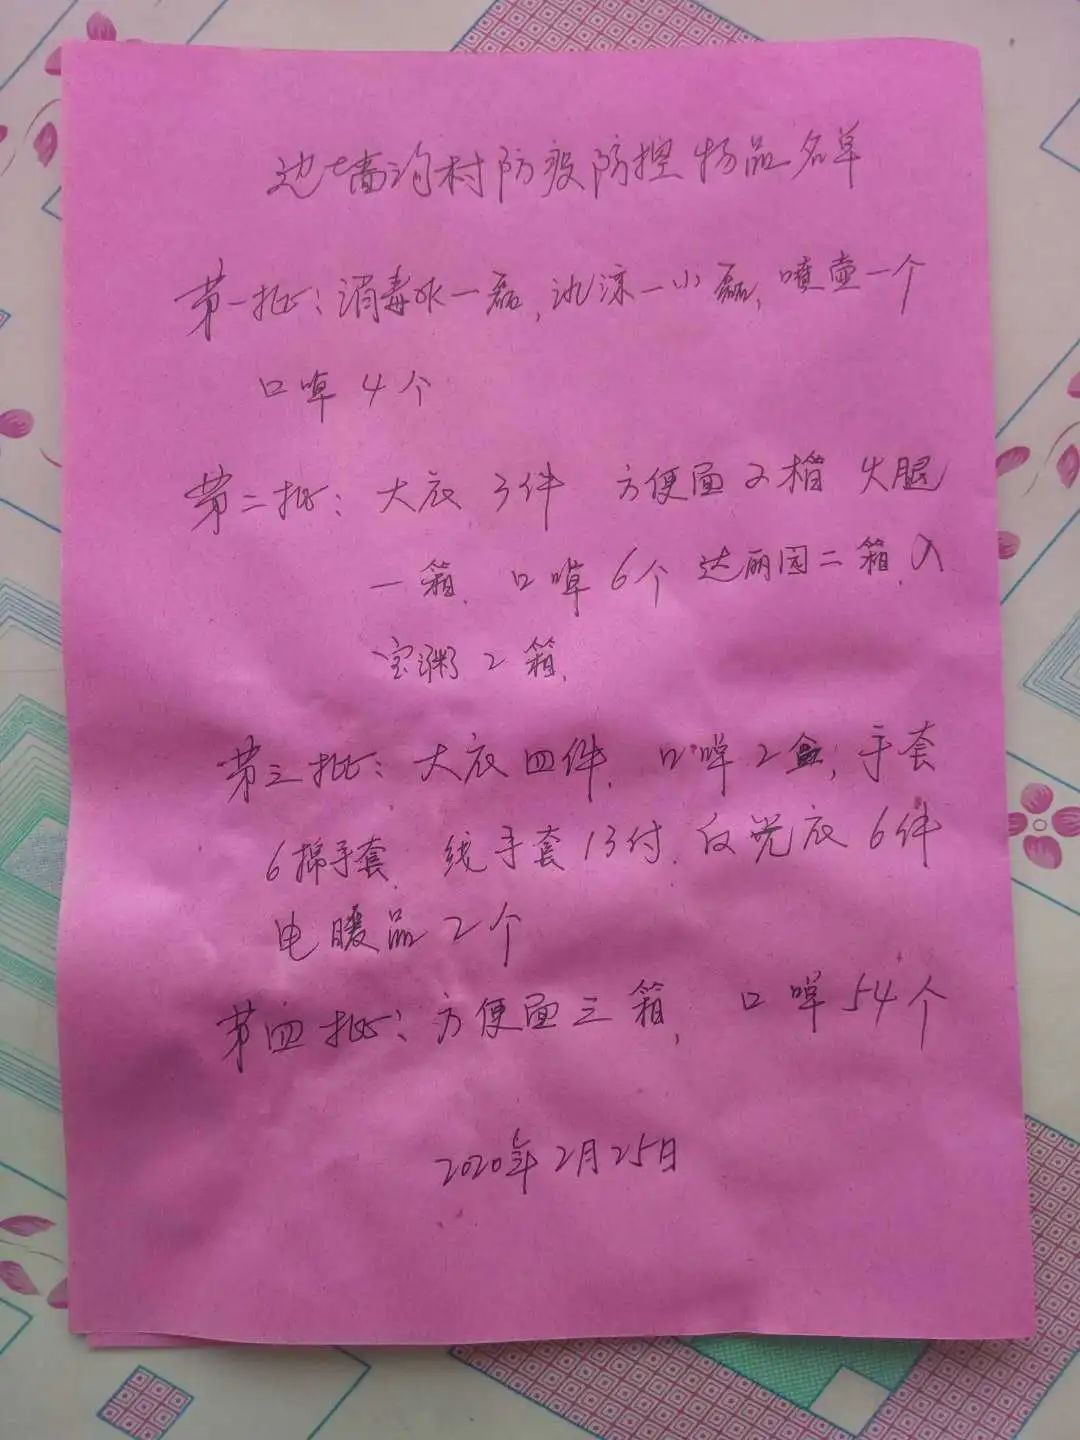 边墙沟村防疫防控物品名单
第一批：消毒水一磊，沈凉一小磊，喷壶一个
口啅4个
第二批：大衣3件 方便面2箱 火腿
一箱、口啅6个 达丽园二箱、八
宝粥2箱、
第三批：大衣四件、口啅2盒；手套
6棉手套、线手套13付、反光衣6件
电暖品2个
第四批：方便面三箱，口啅54个
2020年2月25日